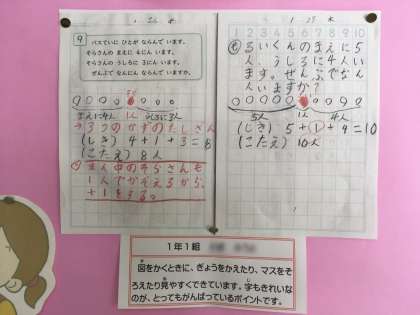 9
バスていに ひとが ならんで います。
そらさんの まえに 4にん います。
そらさんの うしろに 3にん います。
ぜんぶで なんにん ならんで いますか。
まえに4人 1人 うしろに3人
3つのかずのたしざん
(しき) 4+1+3=8
(こたえ) 8人
まん中のそらさんも
1人でかぞえるから、
+1をする。
1 2 3 4 5 6 7 8 9 10
るいくんのまえに5
人、うしろに4人い
ます。ぜんぶでなん
人いますか?
5人 1人 4人
(しき) 5+1+4=10
(こたえ) 10人
1年1組
図をかくときに、ぎょうをかえたり、マスをそ
ろえたり見やすくできています。字もきれいな
のが、とってもがんばっているポイントです。